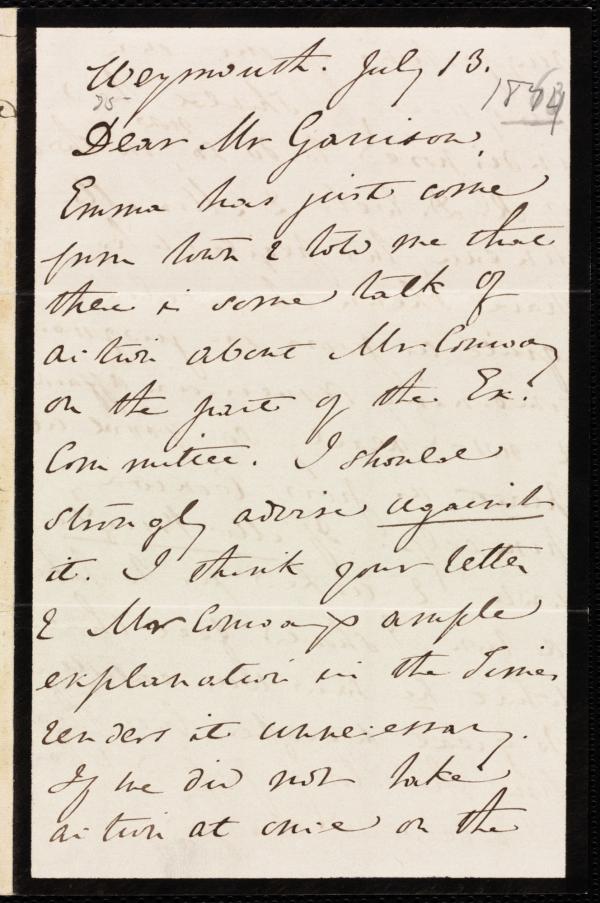 Weymouth. July 13.
Dear Mr Garrison,
Emma has just come
from town & told me that
there is some talk of
action about Mr Conway
on the part of the Ex.
Committee. I should
strongly advise against
it. I think your letter
& Mr Conway's ample
explanation in the Times
renders it unnecessary.
If we did not take
action at once on the